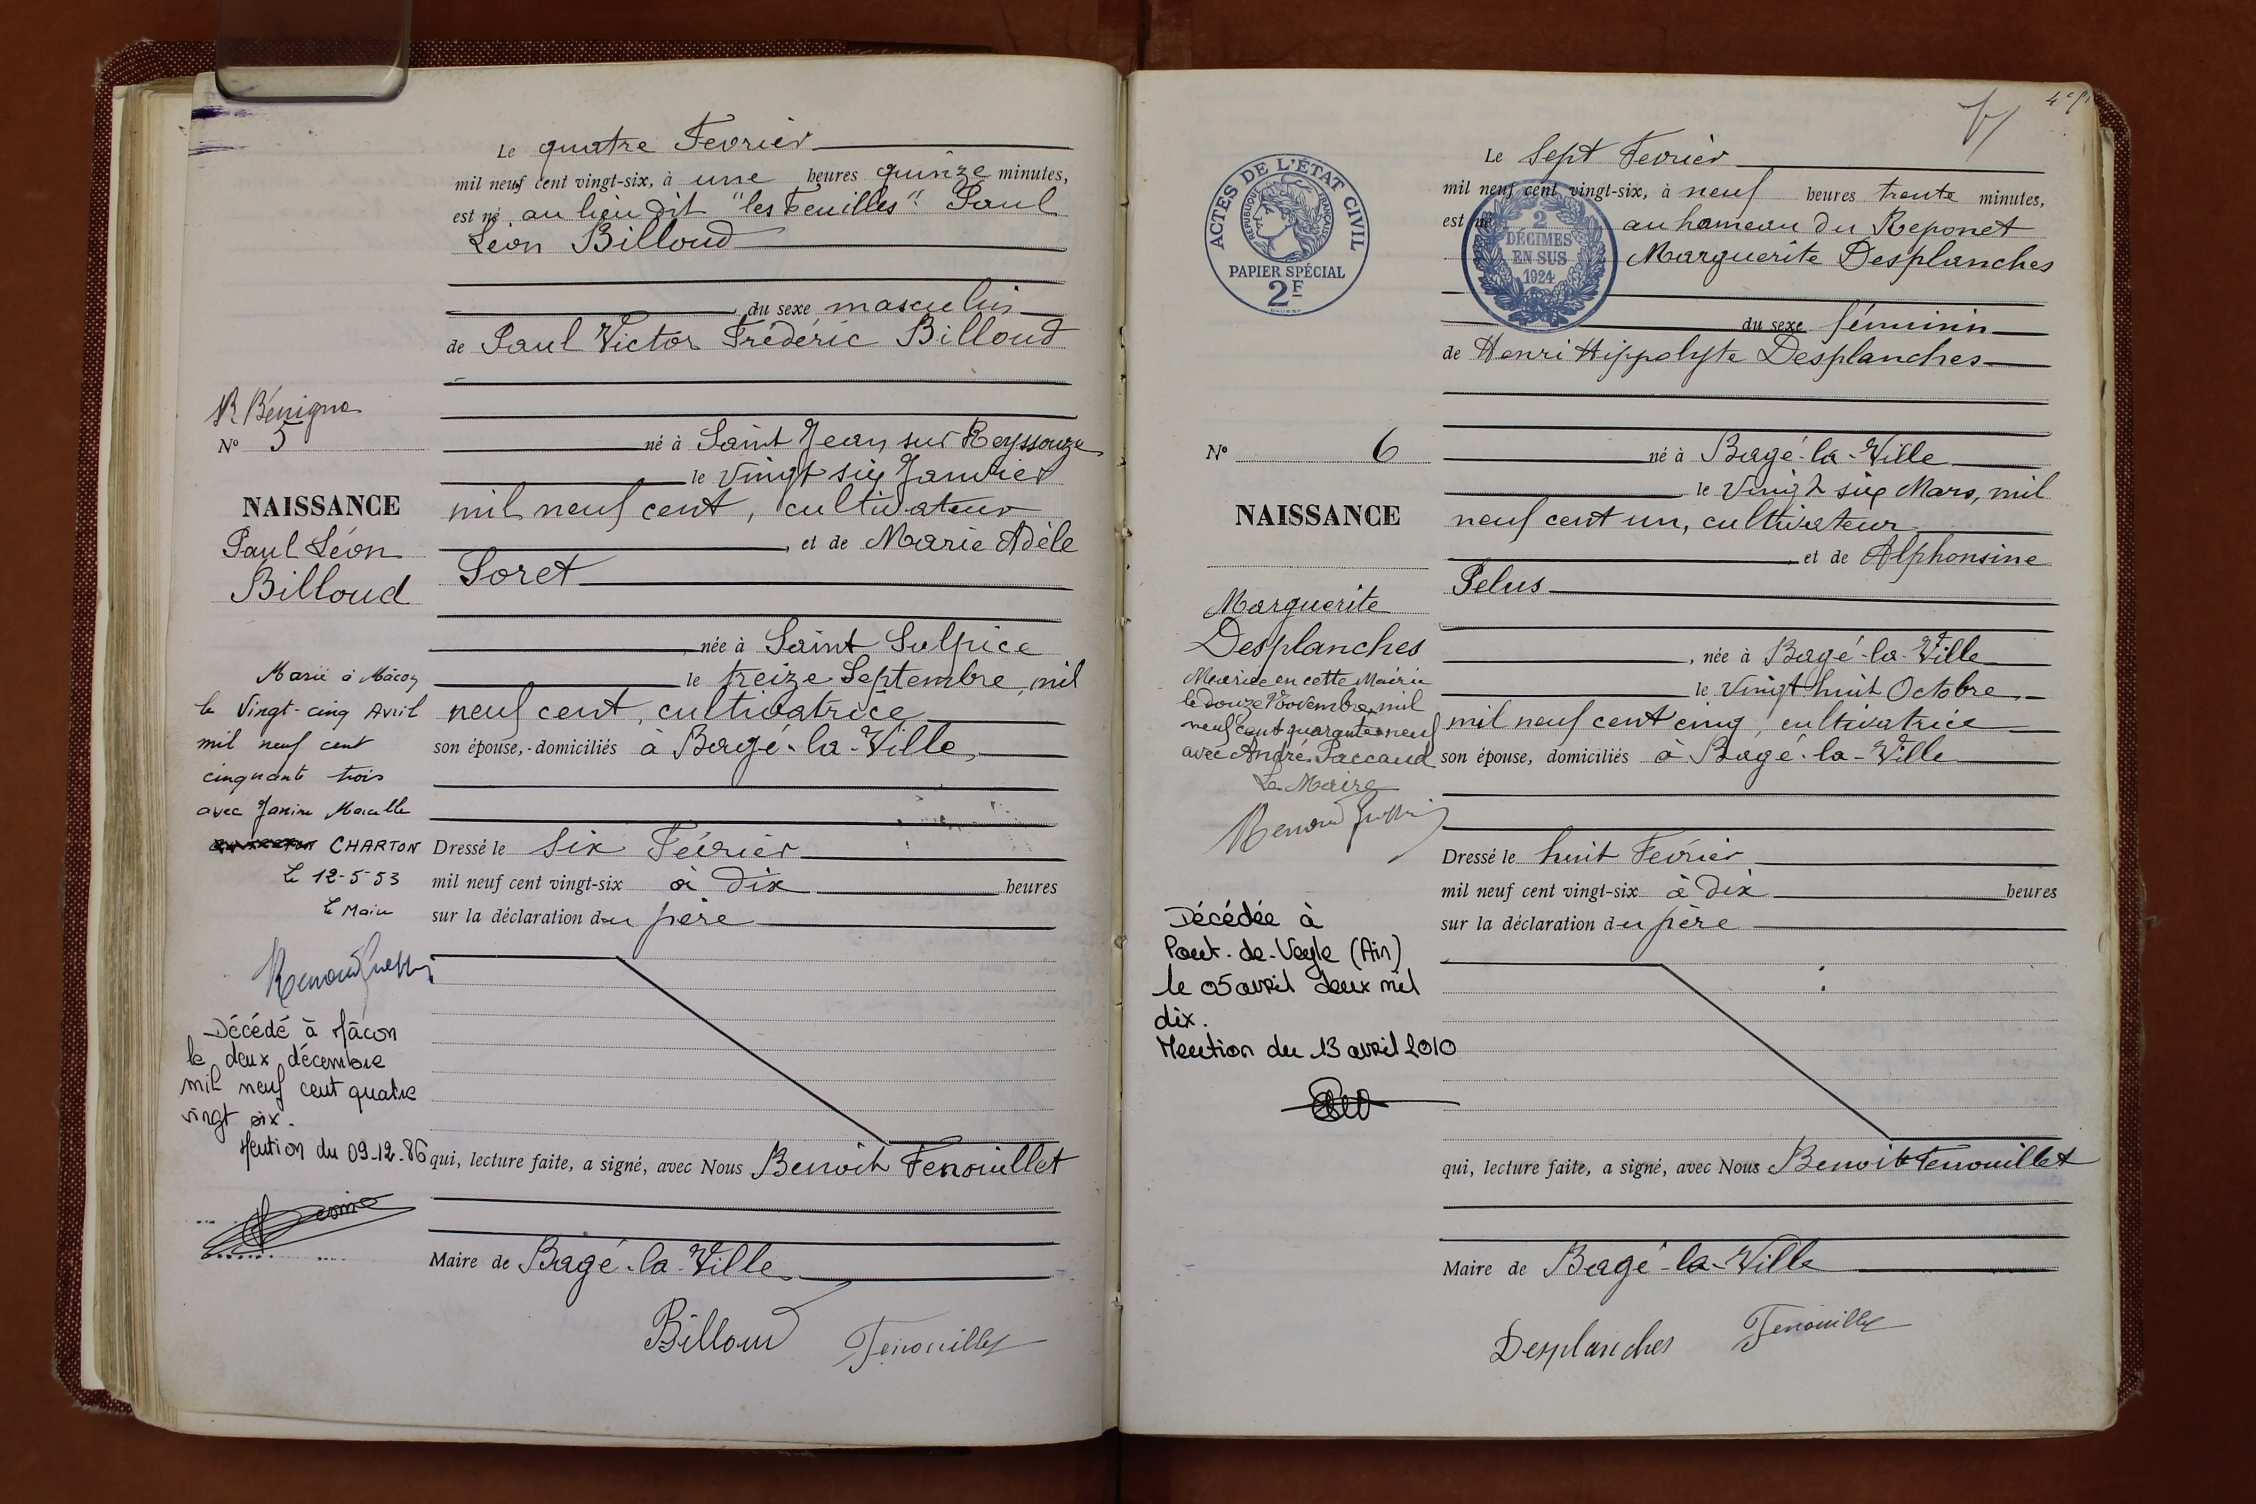 Le quatre Fevrier
mil neuf cent vingt-six, à une heures quinze minutes,
est né au lieu dit "les Feuilles" Paul
Léon Billoud
du sexe masculin
de Paul Victor Frédéric Billoud
né à Saint Jean sur Reyssouze
le vingt six Janvier
mil neuf cent, cultivateur
et de Marie Adèle
Soret
née à Saint Sulpice
le treize Septembre, mil
neuf cent, cultivatrice
son épouse, domiciliés à Bagé-la-Ville,
Dressé le six Février
mil neuf cent vingt-six à dix heures
sur la déclaration du père
qui, lecture faite, a signé, avec Nous Benoit Fenouillet
Maire de Bagé-la-Ville
Billoud Fenouillet
R Bénigne
N° 5
NAISSANCE
Paul Léon
Billoud
Marié à Mâcon
le Vingt-cinq Avril
mil neuf cent
cinquante trois
avec Janine Marcelle
CHARTON
Le 12-5-53
Le Maire
Décédé à Mâcon
le deux décembre
mil neuf cent quatre
vingt six.
Mention du 09-12-86
4e f
Le Sept Fevrier
mil neuf cent vingt-six, à neuf heures trente minutes,
est né au hameau du Reponet
Marguerite Desplanches
du sexe féminin
de Henri Hippolyte Desplanches
né à Bagé-la-Ville
le vingt six Mars, mil
neuf cent un, cultivateur
et de Alphonsine
Pelus
, née à Bagé-la-Ville
le vingt huit Octobre
mil neuf cent cinq, cultivatrice
son épouse, domiciliés à Bagé-la-Ville
Dressé le huit Février
mil neuf cent vingt-six à dix heures
sur la déclaration du père
qui, lecture faite, a signé, avec Nous Benoit Fenouillet
Maire de Bagé-la-Ville
Desplanches Fenouillet
ACTES DE L'ÉTAT CIVIL
RÉPUBLIQUE FRANÇAISE
PAPIER SPÉCIAL
2F
2
DÉCIMES
EN SUS
1924
N° 6
NAISSANCE
Marguerite
Desplanches
Mariée en cette Mairie
le douze Novembre, mil
neuf cent quarante neuf
avec André Paccaud
Le Maire
Décédée à
Pont-de-Veyle (Ain)
le 05 avril deux mil
dix.
Mention du 13 avril 2010